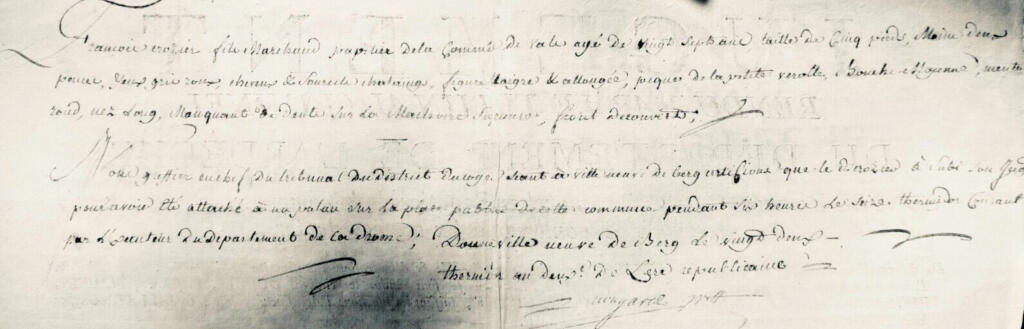 François crozier fils Marchand papetier dela Commune de vals agé de vingt sept ans taille de Cinq pieds, Moins deux
pouces, yeux gris roux, cheveux & sourcils chataings, figure maigre & allongée, piqué de la petite verolle, Bouche Moyenne, menton
rond, nez long, Manquant de dents sur La Machoire Superieure, front decouvert;
Nous greffier enchef du tribunal du district Seant a ville neuve de berg certifions que le d. crozier à subi son
pour avoir été attaché à un poteau sur la place publique de cette commune pendant six heures Le seize thermidor Courant
par L'executeur du departement de la drome; ville neuve de Berg Le vingt deux
thermidor an deux. de L'ere republicaine